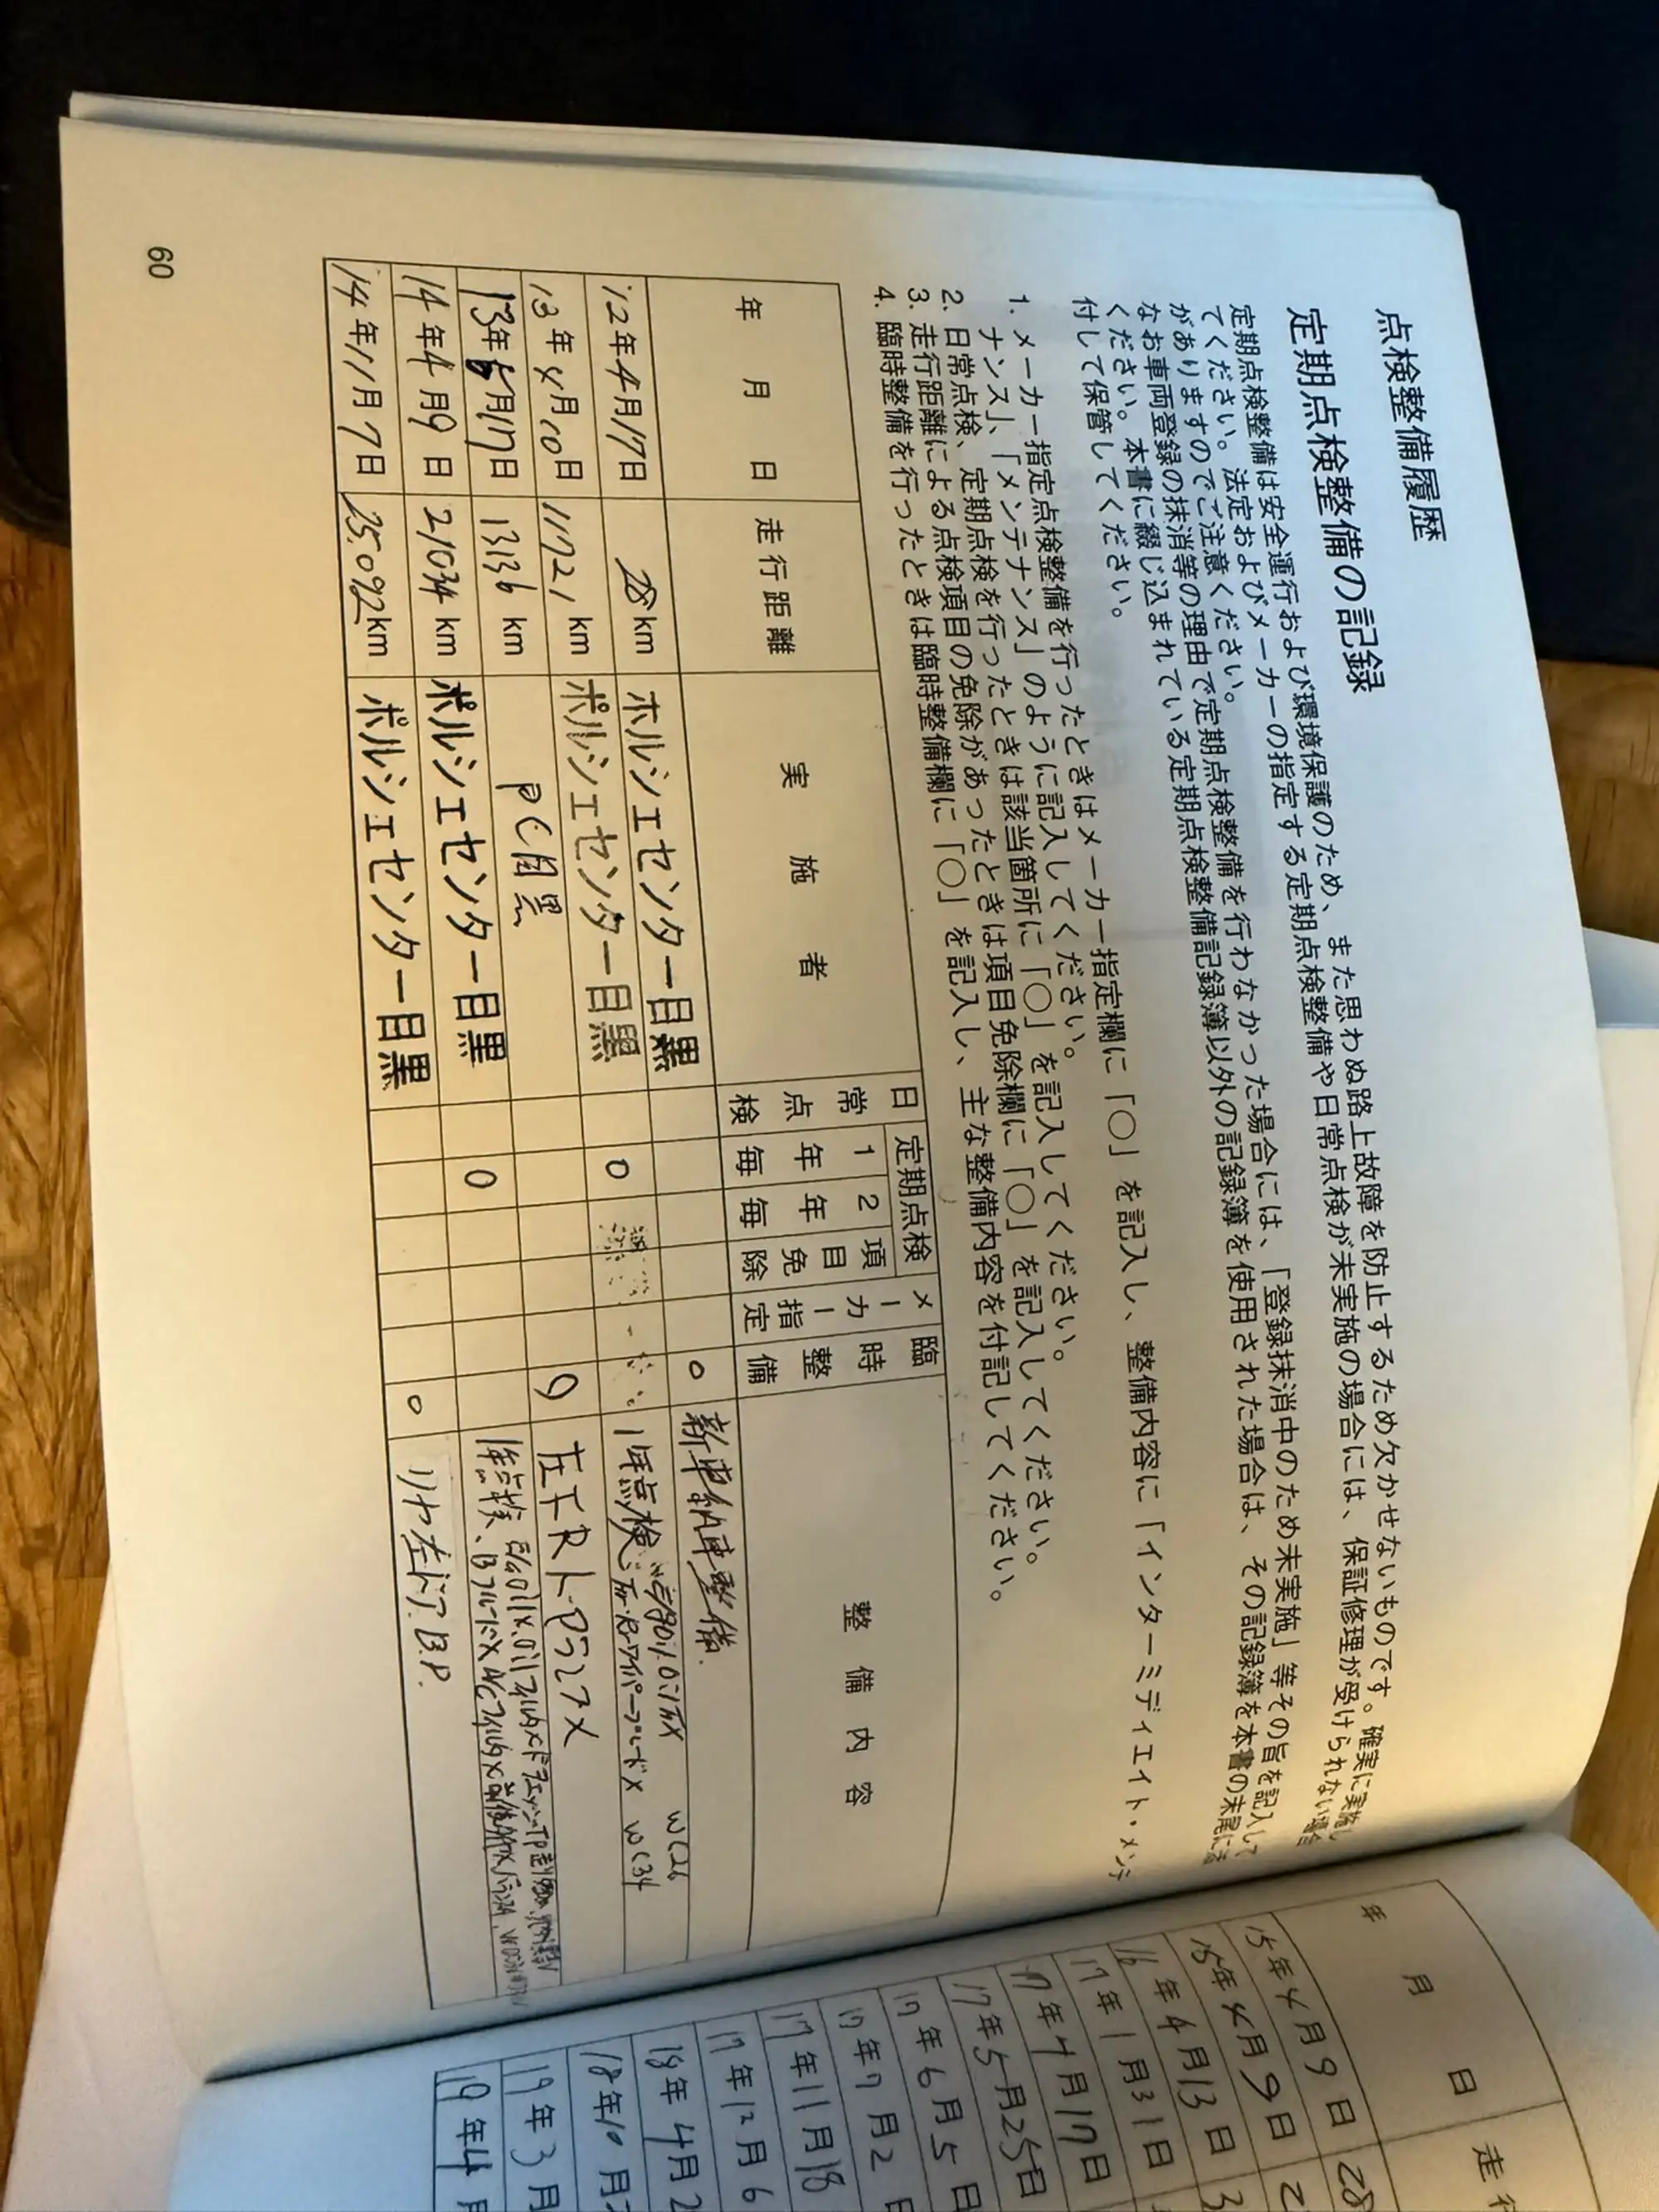 点検整備履歴
定期点検整備の記録
定期点検整備は安全運行および環境保護のため、また思わぬ路上故障を防止するため欠かせないものです。確実に実施し
てください。法定およびメーカーの指定する定期点検整備や日常点検が未実施の場合には、保証修理が受けられない場合
がありますのでご注意ください。
なお車両登録の抹消等の理由で定期点検整備を行わなかった場合には、「登録抹消中のため未実施」等その旨を記入して
ください。本書に綴じ込まれている定期点検整備記録簿以外の記録簿を使用された場合は、その記録簿を本書の末尾に添
付して保管してください。
1. メーカー指定点検整備を行ったときはメーカー指定欄に「○」を記入し、整備内容に「インターミディエイト・メンテ
ナンス」、「メンテナンス」のように記入してください。
2. 日常点検、定期点検を行ったときは該当箇所に「○」を記入してください。
3. 走行距離による点検項目の免除があったときは項目免除欄に「○」を記入してください。
4. 臨時整備を行ったときは臨時整備欄に「○」を記入し、主な整備内容を付記してください。
年 月 日 走行距離 実施者 日常点検 定期点検 1年毎 2年毎 項目免除 メーカー指定 臨時整備 整備内容
'12年4月17日 28km ポルシェセンター目黒 ○ 新車納車整備.
13年4月10日 11721 km ポルシェセンター目黒 ○ 1年点検 ワイパーブレードX WC34 WC26
13年6月17日 13136 km PC目黒 ○ 左FRト
14年4月9日 21034 km ポルシェセンター目黒 ○ 1年点検、
14年11月7日 25,092km ポルシェセンター目黒 ○ リヤ左ドア B.P.
60
年 月 日 走行
15年4月9日 28
15年4月9日 2
16年4月13日 3
17年1月31日
17年4月17日
17年5月25日
17年6月5日
17年7月2日
17年11月18
17年12月6
18年4月2
18年10月
19年3月
19年4月